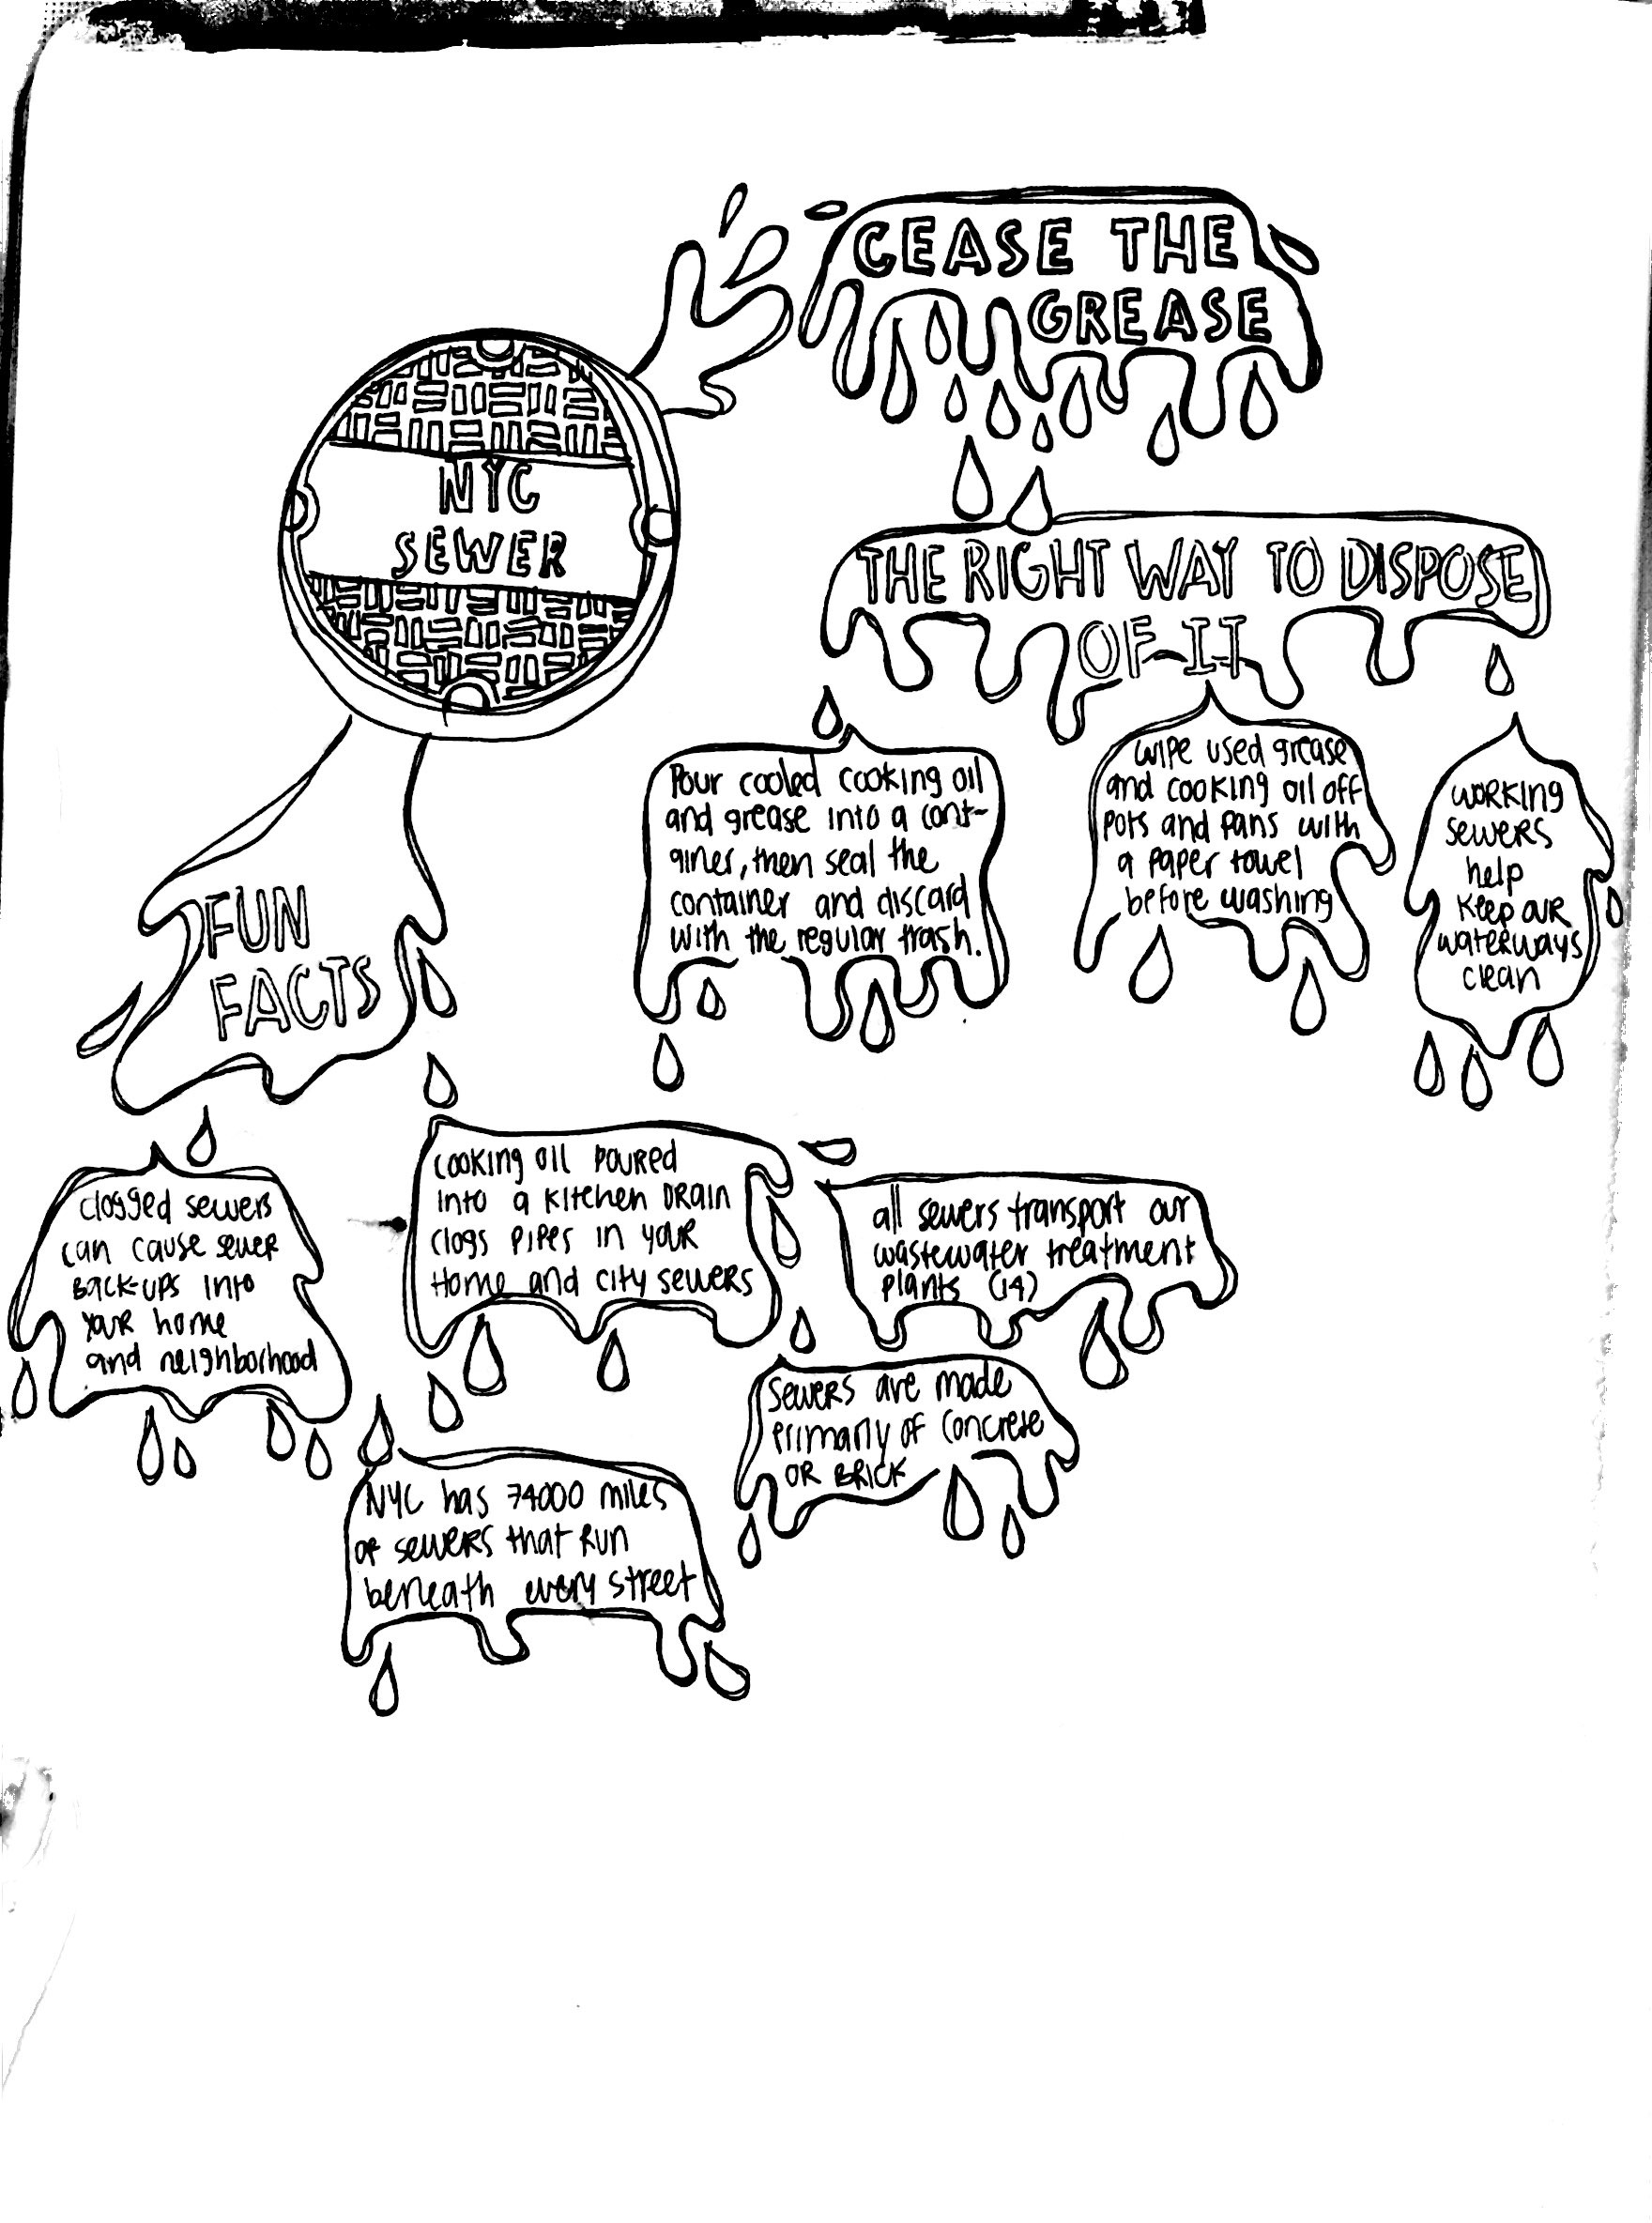 CEASE THE
GREASE
NYC
SEWER
THE RIGHT WAY TO DISPOSE
OF IT
Pour cooled cooking oil
and grease into a cont-
ainer, then seal the
container and discard
with the regular trash.
wipe used grease
and cooking oil off
pots and pans with
a paper towel
before washing
working
sewers
help
keep our
waterways
clean
FUN
FACTS
clogged sewers
can cause sewer
back-ups into
your home
and neighborhood
cooking oil poured
into a kitchen drain
clogs pipes in your
Home and city sewers
all sewers transport our
wastewater treatment
plants (14)
sewers are made
primarily of concrete
OR BRICK
NYC has 74000 miles
of sewers that run
beneath every street